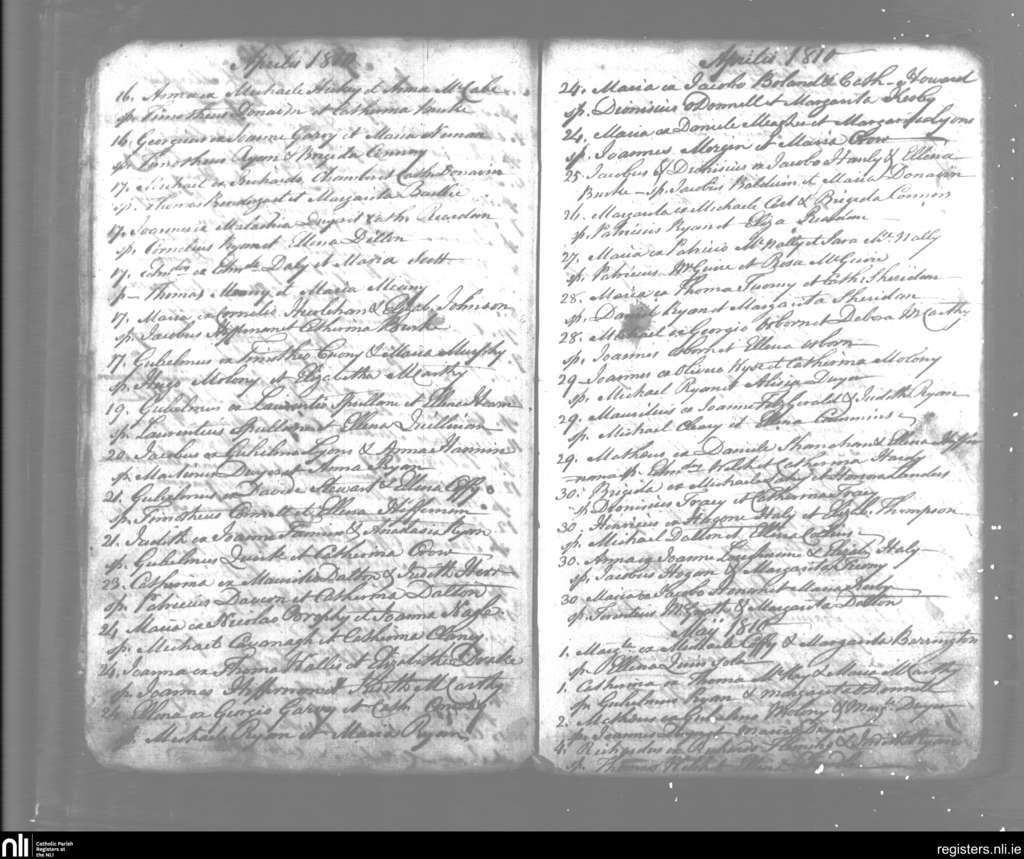 Aprilis 1810
16. Anna ex Michaele Hickey et Anna McCabe
sp. Timotheus Donavin et Catherina Burke
16. Georgius ex Joanne Garvy et Maria
sp. Timotheus Ryan & Brigida Conway
17. Michael ex Richardo Chambers et Cath. Donavin
sp. Thomas Prendergast et Margarita Burke
17. Joanna ex Malachia Dwyer et Cath. Reardon
sp. Cornelius Ryan et Ellena Dillon
17. Edmdus ex Edmdo Daly et Maria Scott
sp Thomas Meany et Maria Meany
17. Maria ex Cornelio Sheelehan & Elizab. Johnson
sp. Jacobus Heffernan et Catherina Burke
17. Gulielmus ex Timotheo Cuony & Maria Murphy
sp. Hugo Molony et Elizabetha McCarthy
19. Gulielmus ex Laurentio Spillane et Elena Hearn
sp. Laurentius Spillane et Ellena Quillinan
20. Jacobus ex Gulielmo Lyons & Anna Hannin
sp. Martinus Dwyer et Anna Ryan
21. Gulielmus ex Davide Stewart & Ellena Coffy
sp. Timotheus Connell et Ellena Heffernan
21. Judith ex Joanne Fannin & Anastasia Ryan
sp. Gulielmus Quirke et Catherina Crow
23. Catherina ex Mauritio Dalton & Judith Herr
sp. Patricius Davern et Catherina Dalton
24. Maria ex Nicolao Brophy et Joanna Nagle
sp. Michael Cavanagh et Catherina Clancy
24. Joanna ex Thoma Wallis et Elizabetha Drake
sp. Joannes Heffernan et Judith McCarthy
24. Ellena ex Georgio Garvy et Cath. Conway
sp. Michael Ryan et Maria Ryan
Aprilis 1810
24. Maria ex Jacobo Boland & Cath. Howard
sp. Dionisius O Donnell et Margarita Kerby
24. Maria ex Daniele Meagher et Margarita Lyons
sp. Joannes Morgan et Maria Crow
25. Jacobus & Dionisius ex Jacobo Hanly & Ellena
Burke - sp. Jacobus Baldwin et Maria Donavin
26. Margarita ex Michaele Cat & Brigida Connors
sp. Patricius Ryan et Eliza Reardan
27. Maria ex Patricio McNally et Sara McNally
sp. Patricius McGuire et Rosa McGuire
28. Maria ex Thoma Tuomy et Cath. Sheridan
sp. David Ryan et Margarita Sheridan
28. Michael ex Georgio Osborn et Debora McCarthy
sp. Joannes Osborn et Ellena Osborn
29. Joannes ex Olivero Kyse et Catherina Molony
sp. Michael Ryan et Alisia Dwyer
29. Mauritius ex Joanne Fitzgerald & Judith Ryan
sp. Michael Cleary et Ellena Cummins
29. Matheus ex Daniele Shanahan & Ellena Heffer
nan sp. Edmdus Walsh et Catherina Hardy
30. Brigida ex Michaele Lahy et Honora Landers
sp. Dionisius Tracy et Catharina Tracy
30. Henricus ex Hugone Haly et Elizab. Thompson
sp. Michael Dalton et Ellena Collins
30. Anna ex Joanne & Elizab. Haly
sp. Jacobus Hogan & Margarita Tuomy
30 Maria ex Jacobo et Maria Kerby
sp. Terentius McGrath & Margarita Dalton
Maij 1810
1. Margta. ex Michaele Coffy & Margarida Barrington
sp. Ellena Quin Sola
1. Catherina ex Thoma McKey & Maria McCarthy
sp. Gulielmus Ryan & Margarita O Donnell
2. Matheus ex Gulielmo Molony & Margt. Dwyer
sp. Joannes Dwyer Maria Dwyer
4. Richardus ex & Judith Ryan
sp. Thomas Walsh et
nli
Catholic Parish
Registers at
the NLI
registers.nli.ie